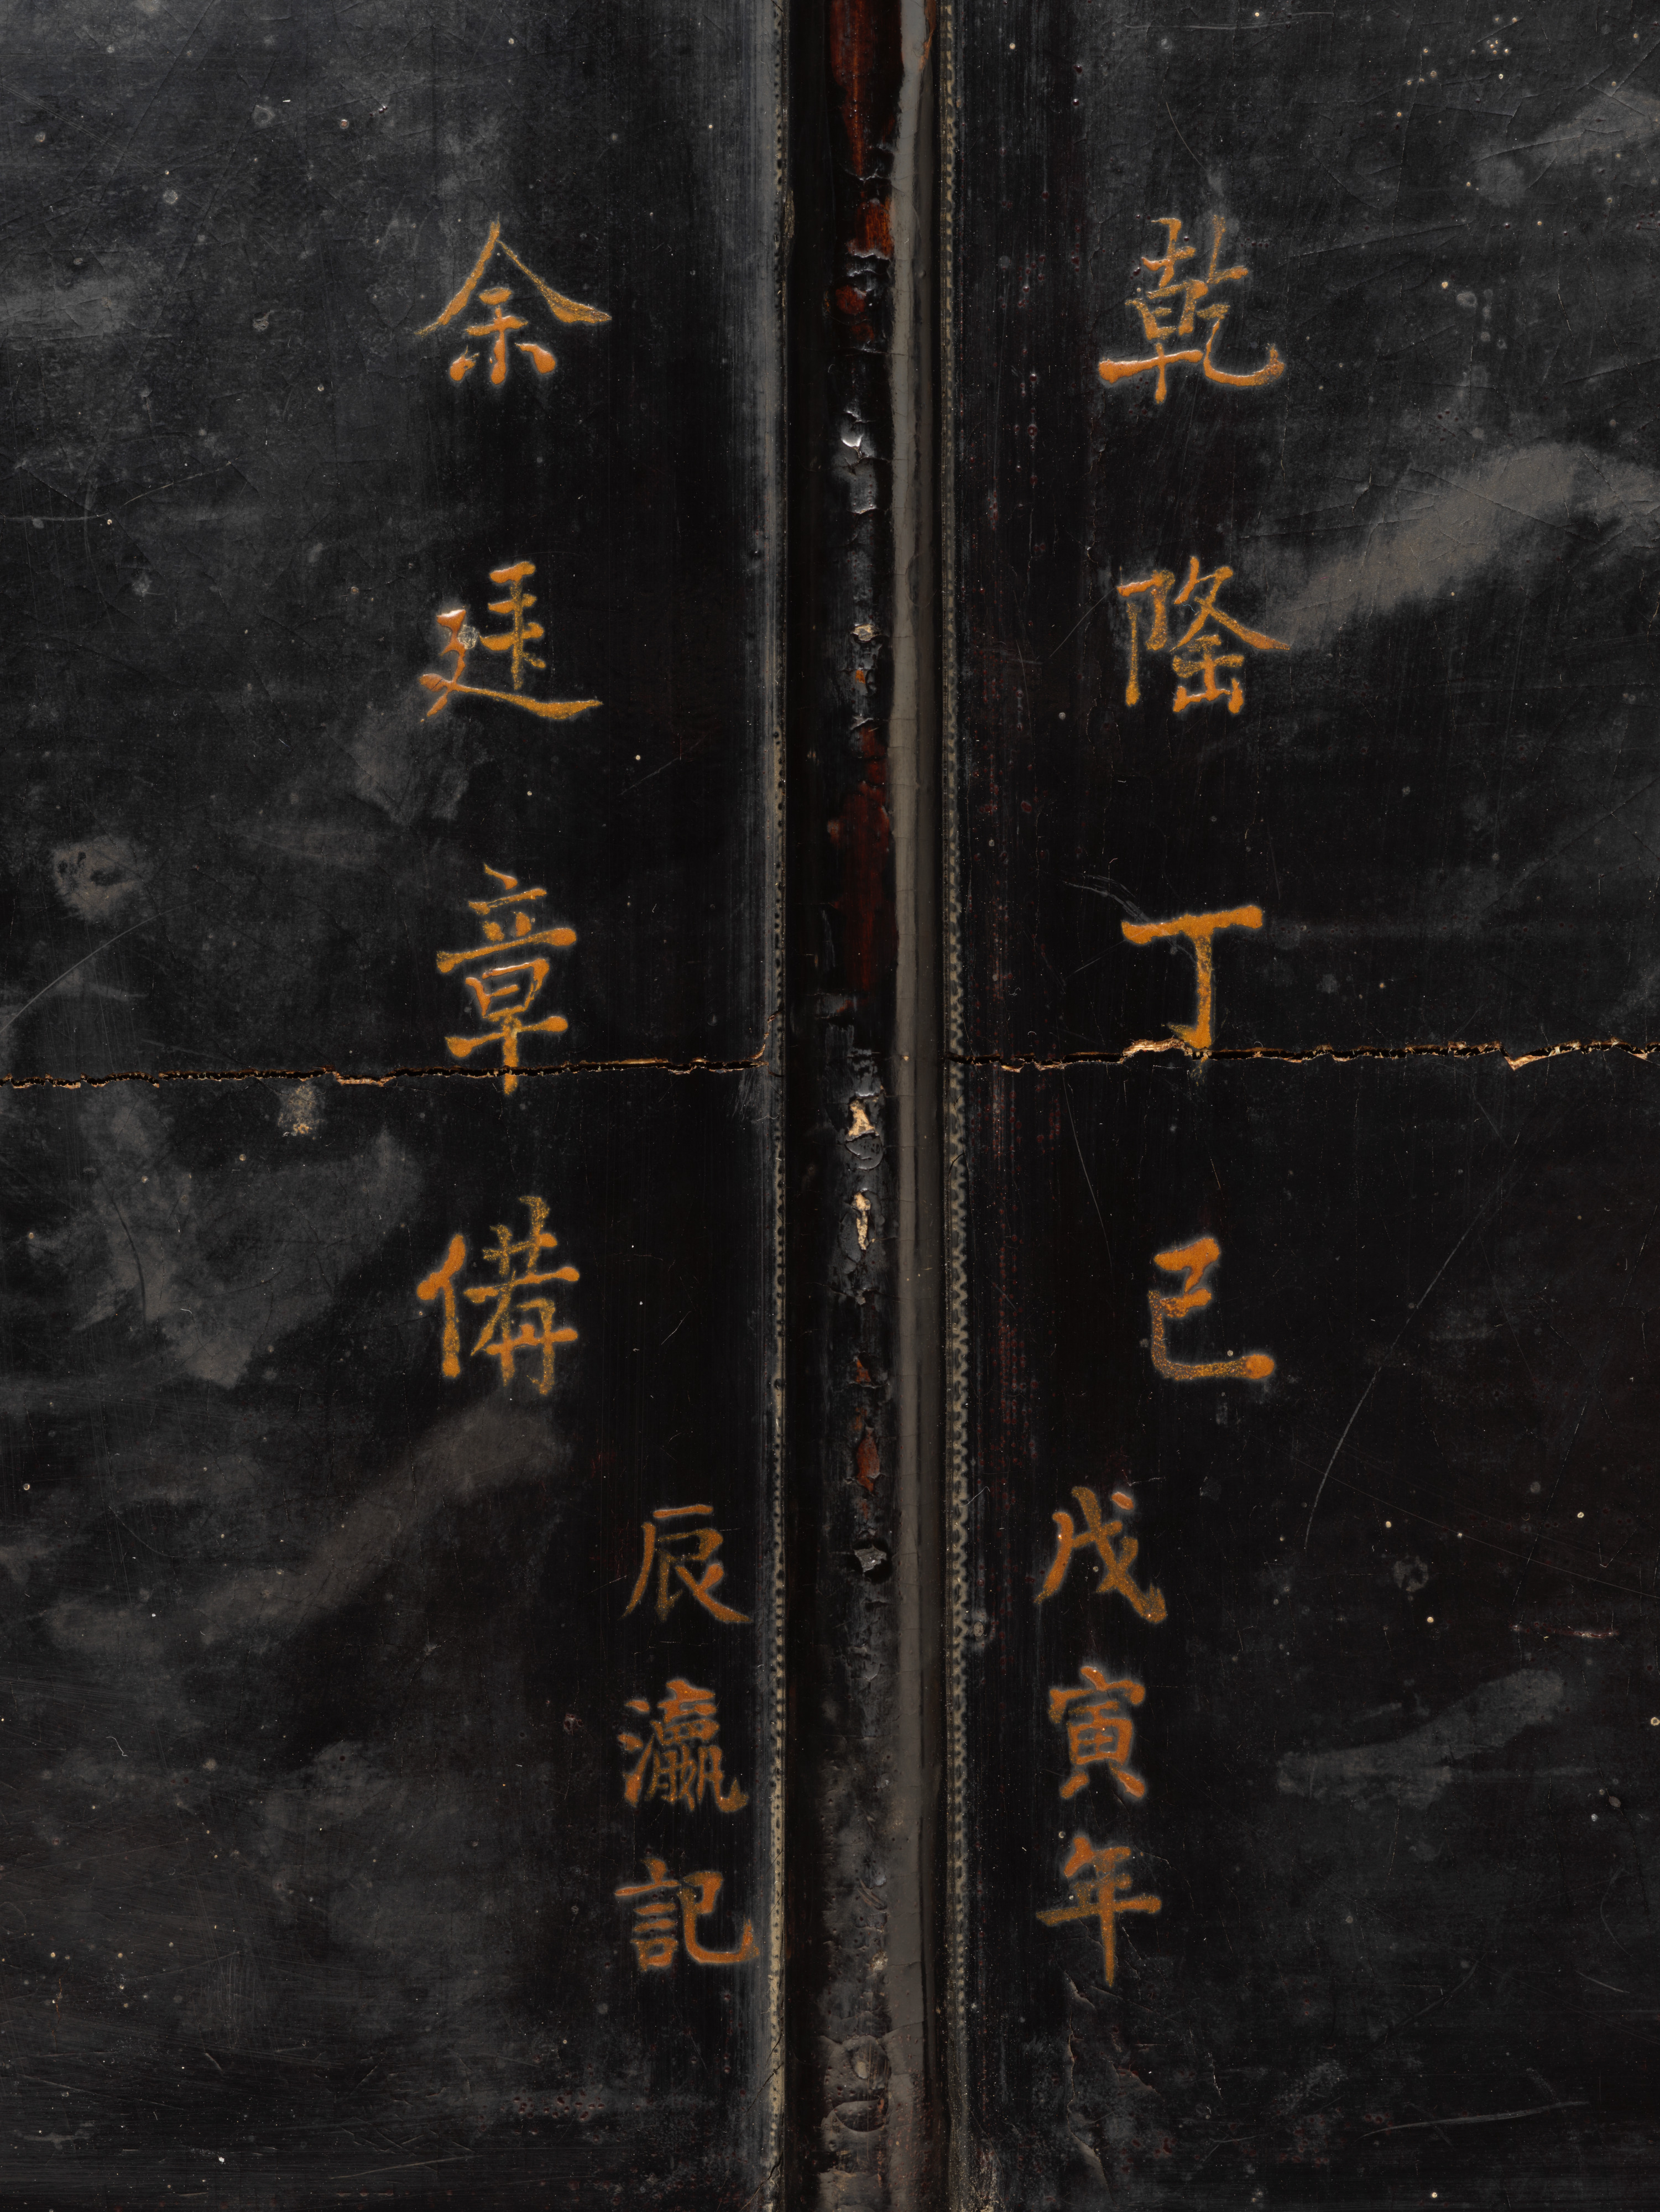 乾隆丁巳
戊寅年
辰瀛記
余廷章備